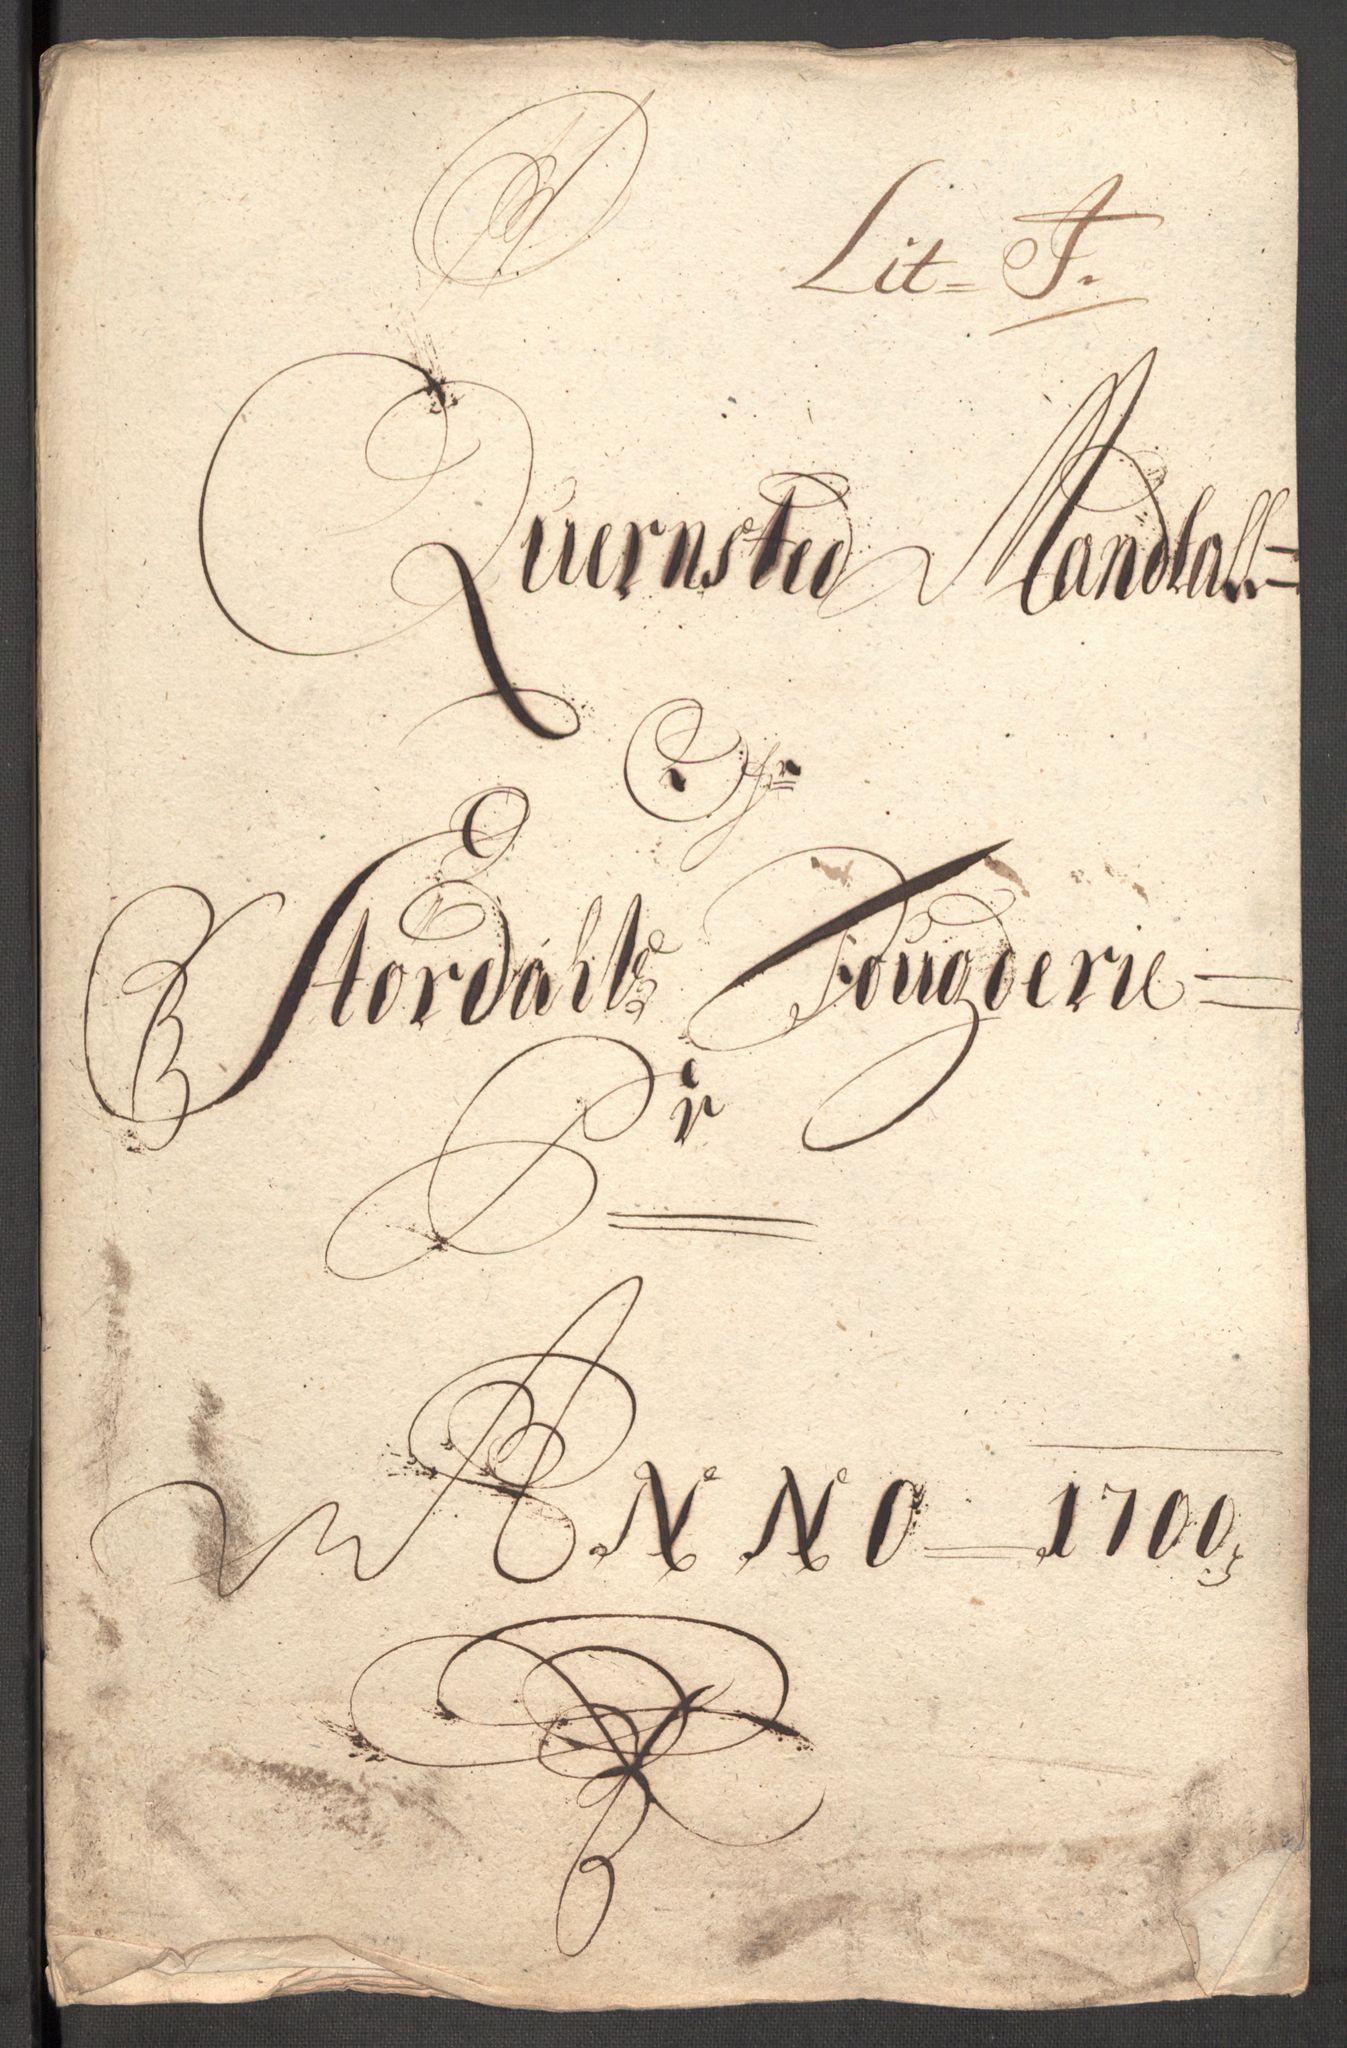 Lit= F.
Quernsted Mandtall=
ofr
Stordahls Fougderie =
Pr
ANNO = 1700